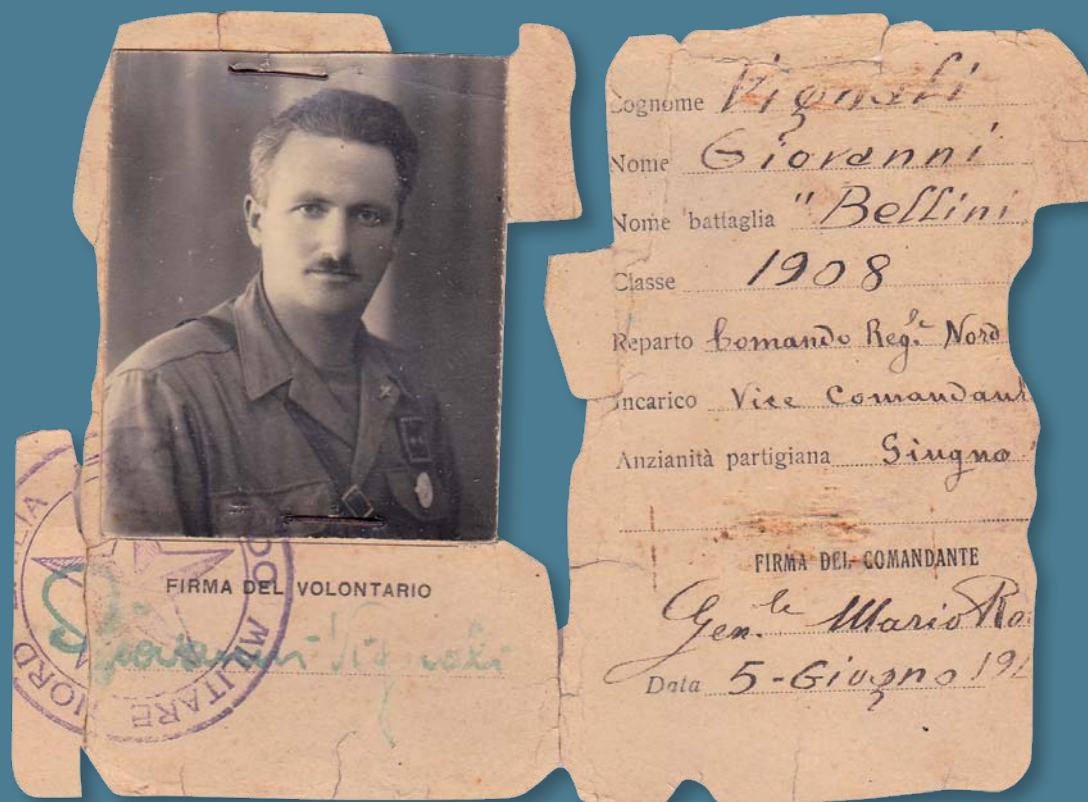 FIRMA DEL VOLONTARIO
Giovanni Vignali
MILITARE NORD
Cognome Vignali
Nome Giovanni
Nome battaglia "Bellini
Classe 1908
Reparto Comando Reg.le Nord
Incarico Vice Comandant
Anzianità partigiana Giugno
FIRMA DEL COMANDANTE
Gen.le Mario Ro
Data 5-Giugno 19